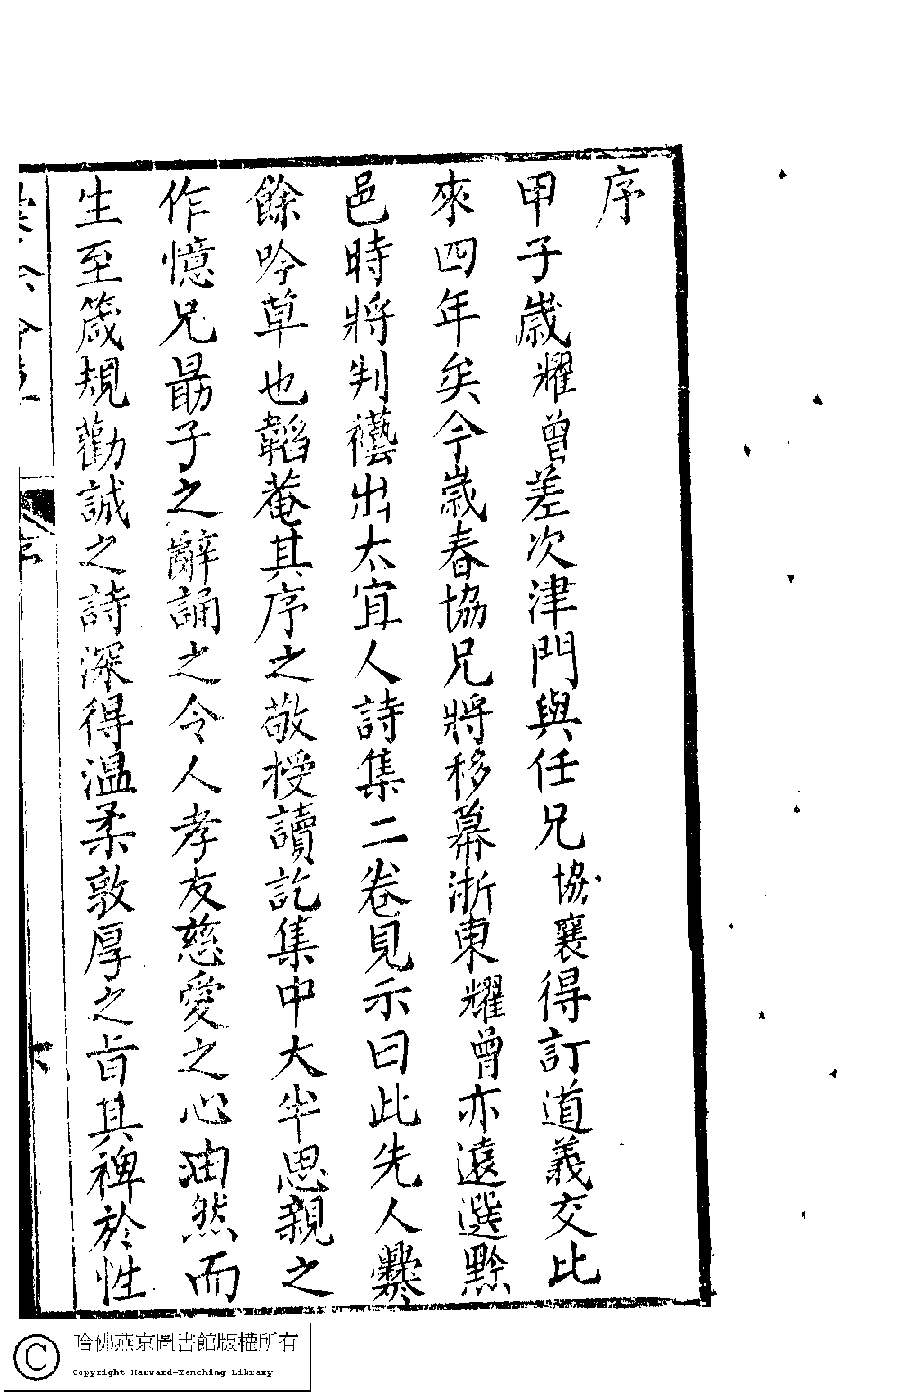 序
甲子歲耀曾差次津門與任兄協襄得訂道義交比
來四年矣今歲春協兄將移幕浙東耀曾亦遠選黔
邑時將判襼出太宜人詩集二卷見示曰此先人爨
餘吟草也韜菴其序之敬授讀訖集中大半思親之
作憶兄勗子之辭誦之令人孝友慈愛之心油然而
生至箴規勸誡之詩深得溫柔敦厚之旨其裨於性
哈佛燕京圖書館版權所有
Copyright Harvard-Yenching Library